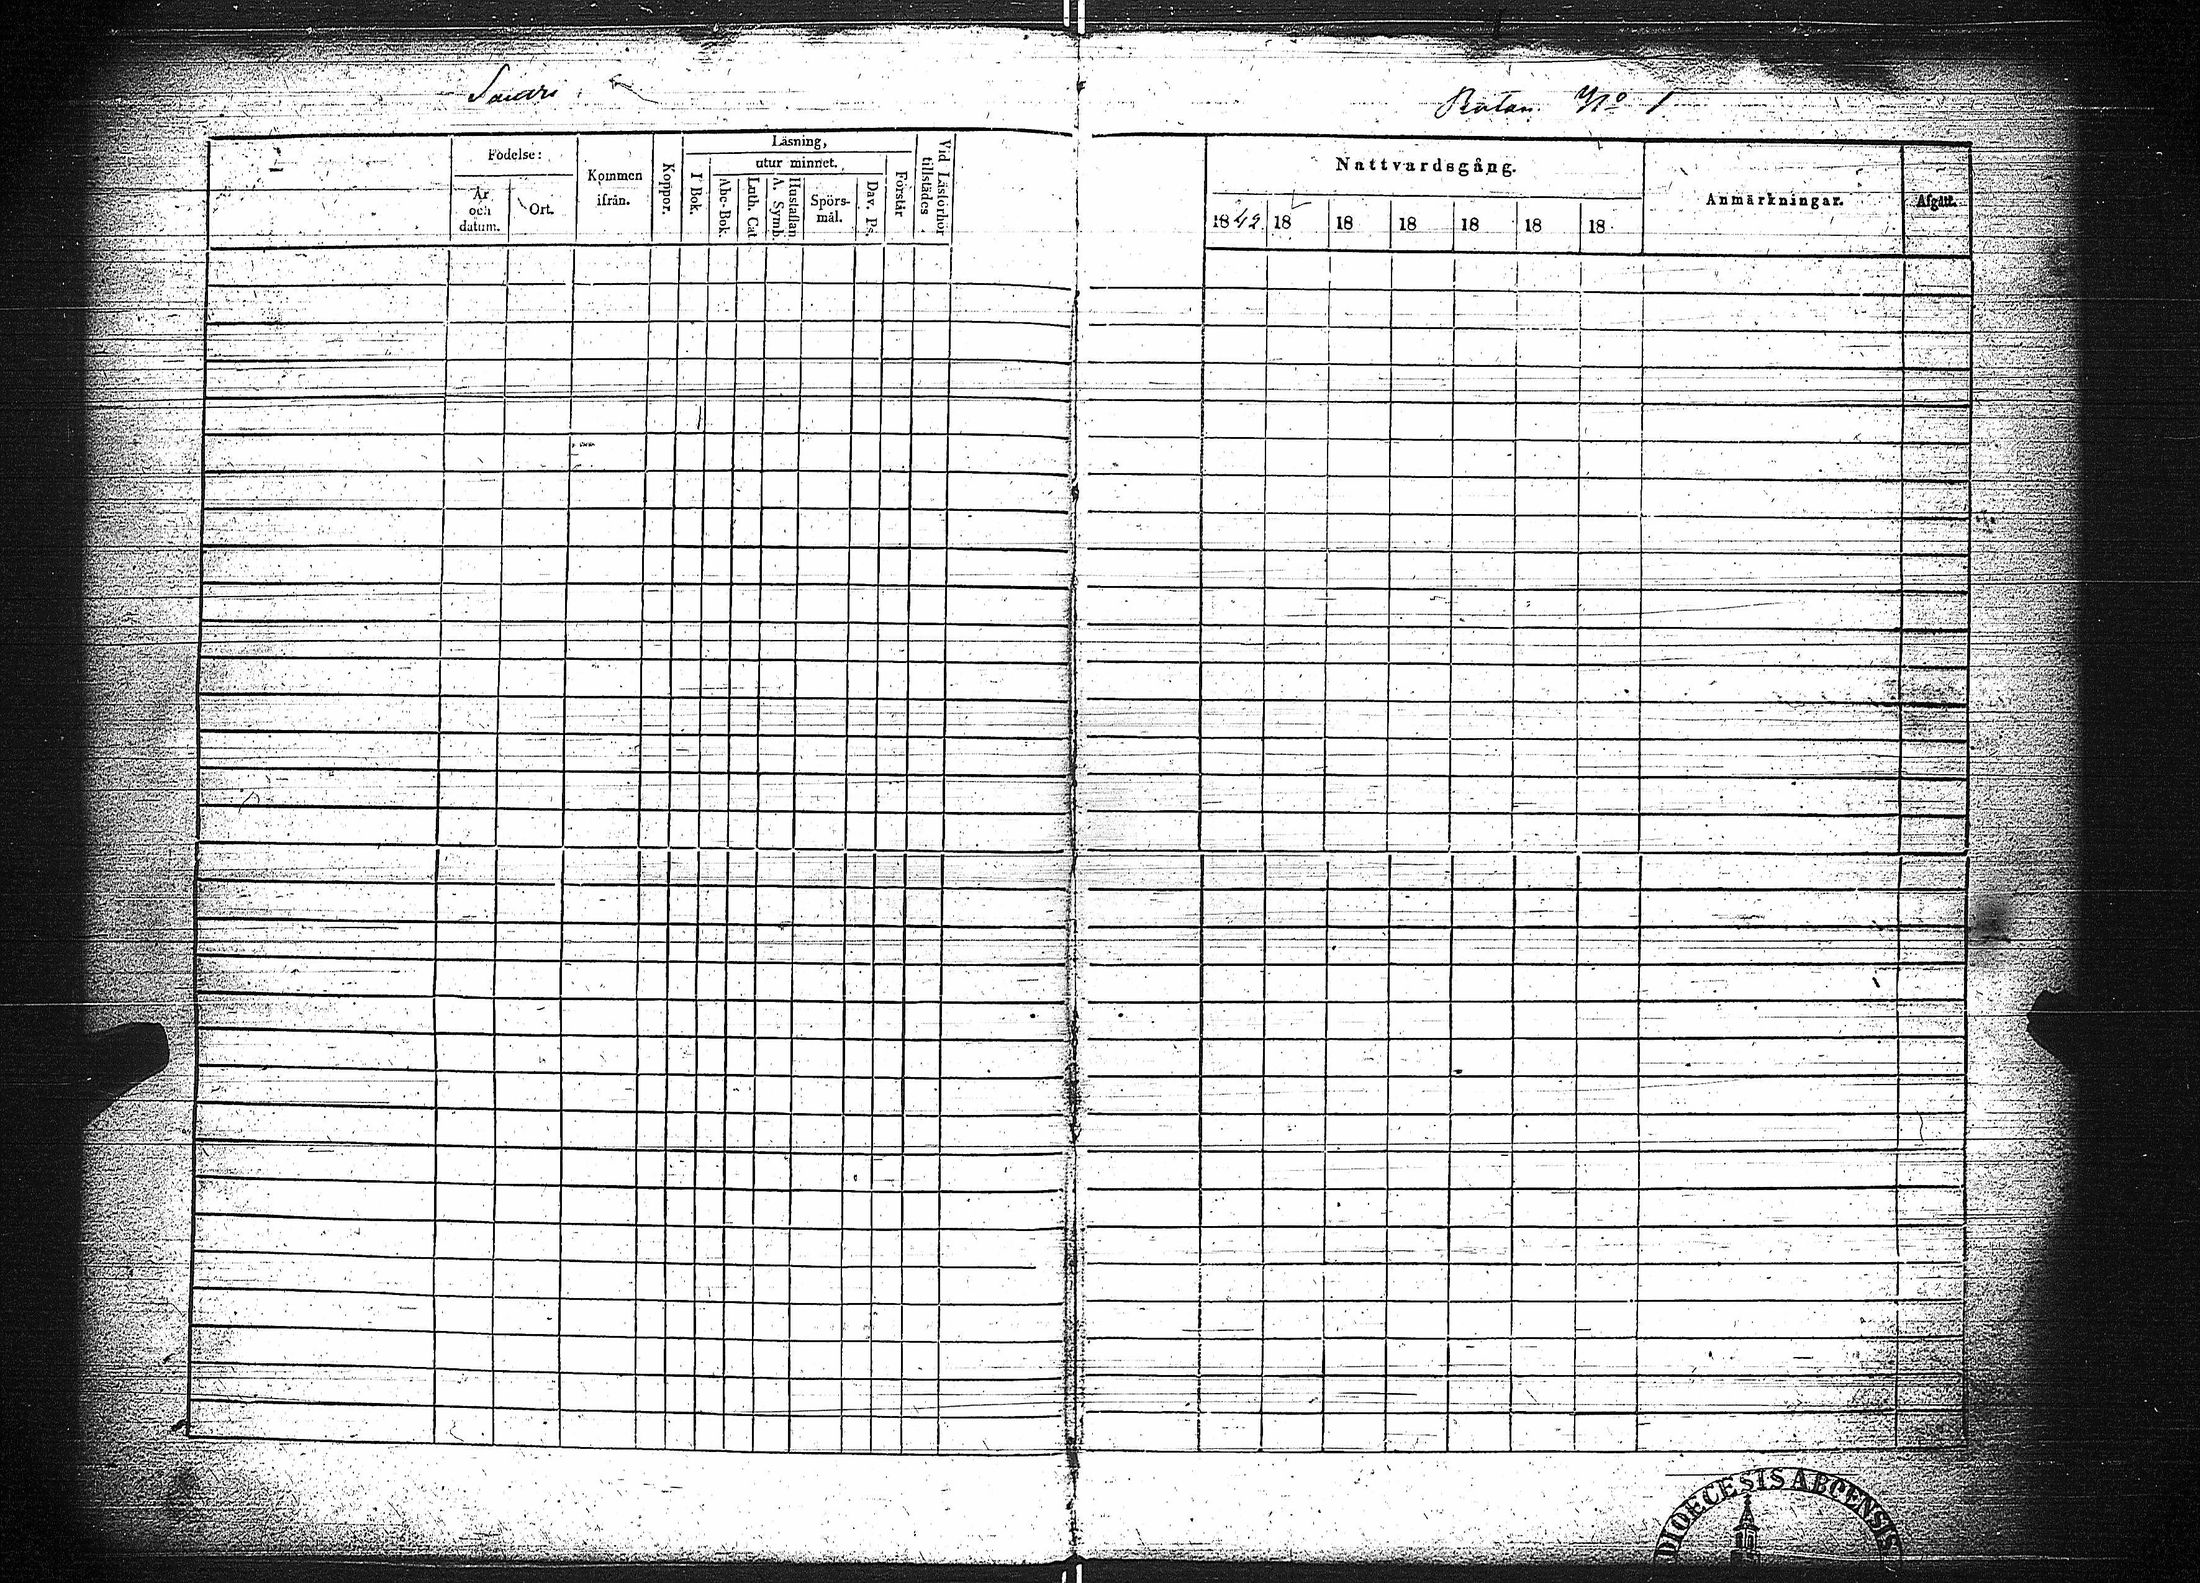 Rotan No 1
Födelse:
År och datum.
Ort.
Kommen ifrån.
Koppor.
Läsning,
utur minnet.
I Bok.
Abc-Bok.
Luth. Cat.
Hustaflan A. Symb.
Spörs-mål.
Dav. Ps.
Förstår
Vid Läsförhör tillstädes.
Nattvardsgång.
1842 18 18 18 18 18 18
Anmärkningar.
Afgått.
DIOECESIS ABOENSIS